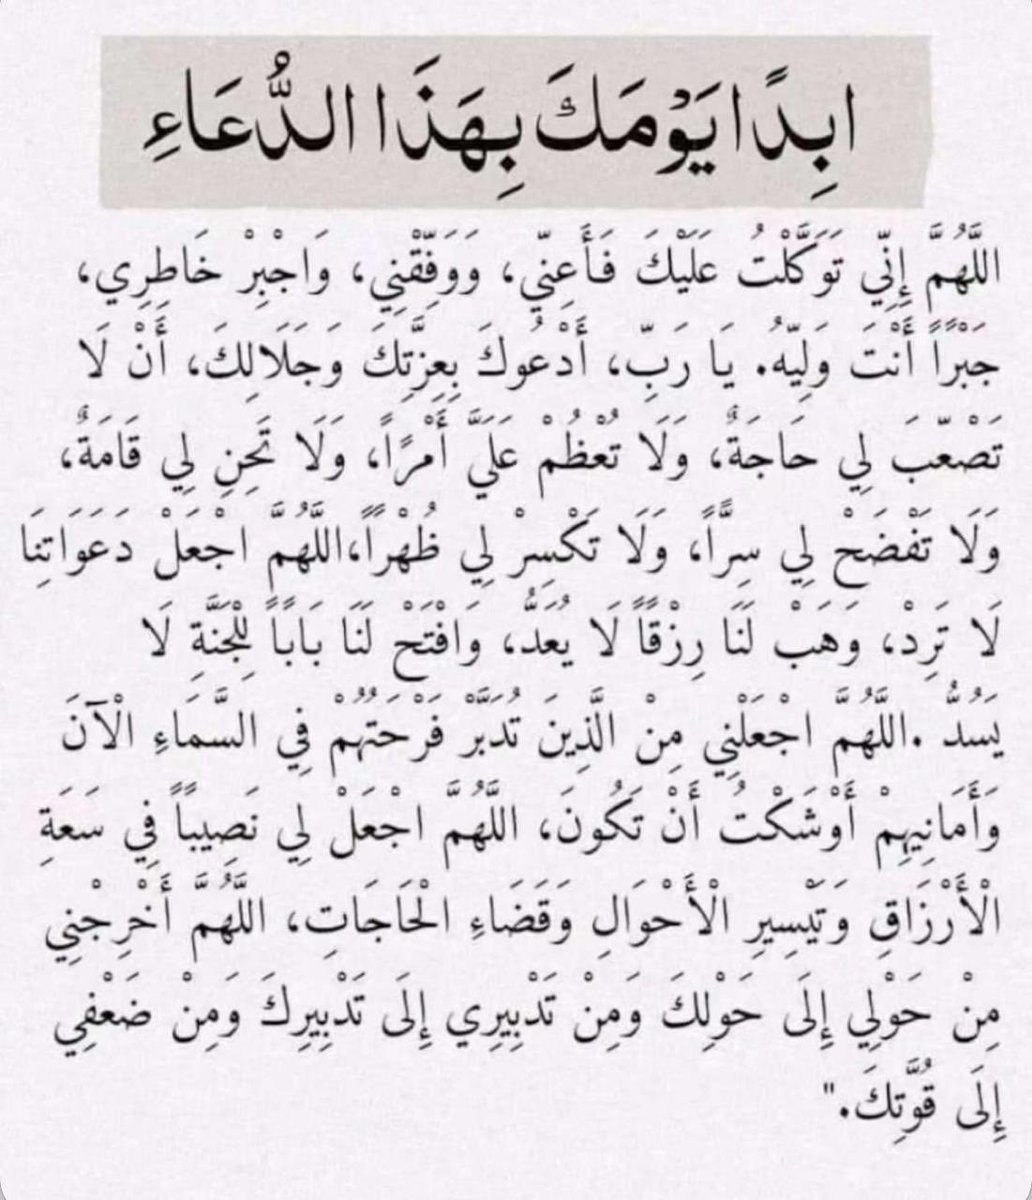 ابِدًا يَوْمَكَ بِهَذَا الدُّعَاءِ
اللَّهُمَّ إِنِّي تَوَكَّلْتُ عَلَيْكَ فَأَعِنِّي، وَوَفِّقْنِي، وَاجْبِرْ خَاطِرِي،
جَبْراً أَنْتَ وَلِيّهُ. يَا رَبِّ، أَدْعُوكَ بِعِزَّتِكَ وَجَلَالِكَ، أَنْ لَا
تَصْعّبَ لِي حَاجَةٌ، وَلَا تُعْظُمْ عَلَيَّ أَمْرًا، وَلَا تَحِنِ لِي قَامَةٌ،
وَلَا تَفْضَحْ لِي سِرًّاً، وَلَا تَكْسِرْ لِي ظُهْراً،اللَّهُمَّ اجْعَلْ دَعَوَاتِنَا
لَا تَرِدْ، وَهَبْ لَنَا رِزْقاً لَا يُعَدُّ، وَافْتَحْ لَنَا بَاباً لِلْجَنَّةِ لَا
يَسُدُّ .اللَّهُمَّ اجْعَلْنِي مِنْ الَّذِينَ تُدَبَّرْ فَرْحَتُهُمْ فِي السَّمَاءِ الْآنَ
وَأَمَانِيهِمْ أَوْشَكْتُ أَنْ تَكُونَ، اللَّهُمَّ اجْعَلْ لِي نَصِيباً فِي سَعَةِ
الْأَرْزَاقِ وَتَيْسِيرِ الْأَحْوَالِ وَقَضَاءِ الْحَاجَاتِ، اللَّهُمَّ أَخْرِجْنِي
مِنْ حَوْلِي إِلَى حَوْلِكَ وَمِنْ تَدْبِيرِي إِلَى تَدْبِيرِكَ وَمِنْ ضَعْفِي
إِلَى قُوَّتِكَ."